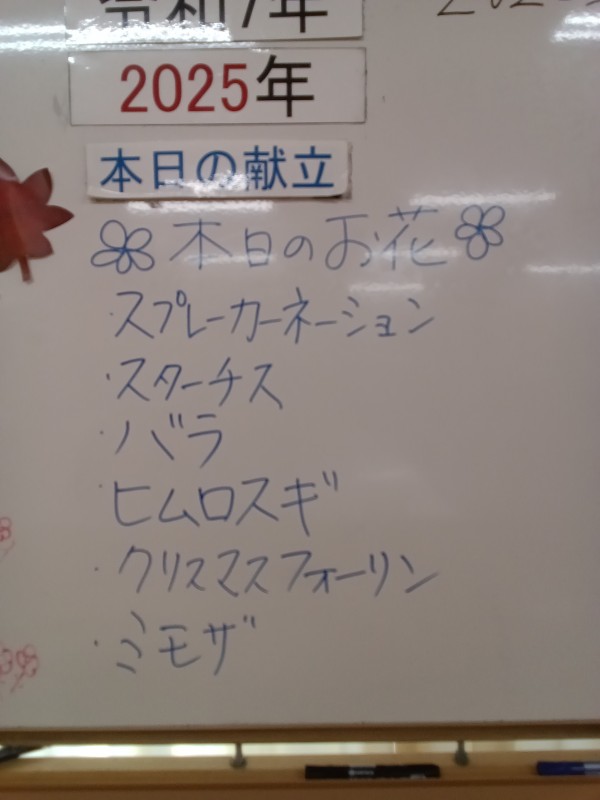 令和7年
2025年
本日の献立
本日のお花
・スプレーカーネーション
・スターチス
・バラ
・ヒムロスギ
・クリスマスフォーリン
・ミモザ